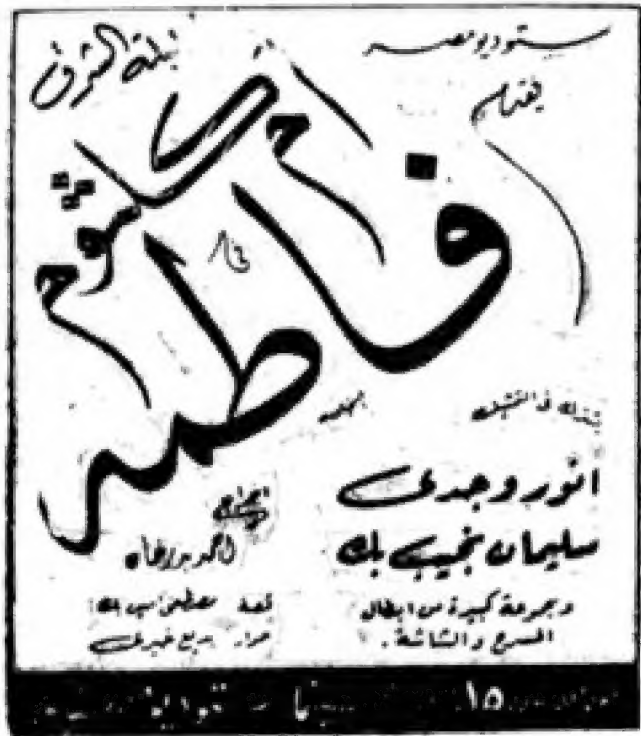 ستوديو مصر
يقدم
أم كلثوم
في
فاطمة
يشترك في التمثيل
انور وجدى
سليمان نجيب بك
ومجموعة كبيرة من ابطال
المسرح والشاشة.
اخراج
احمد بدرخان
قصة مصطفى امين بك
حوار بديع خيرى
١٥